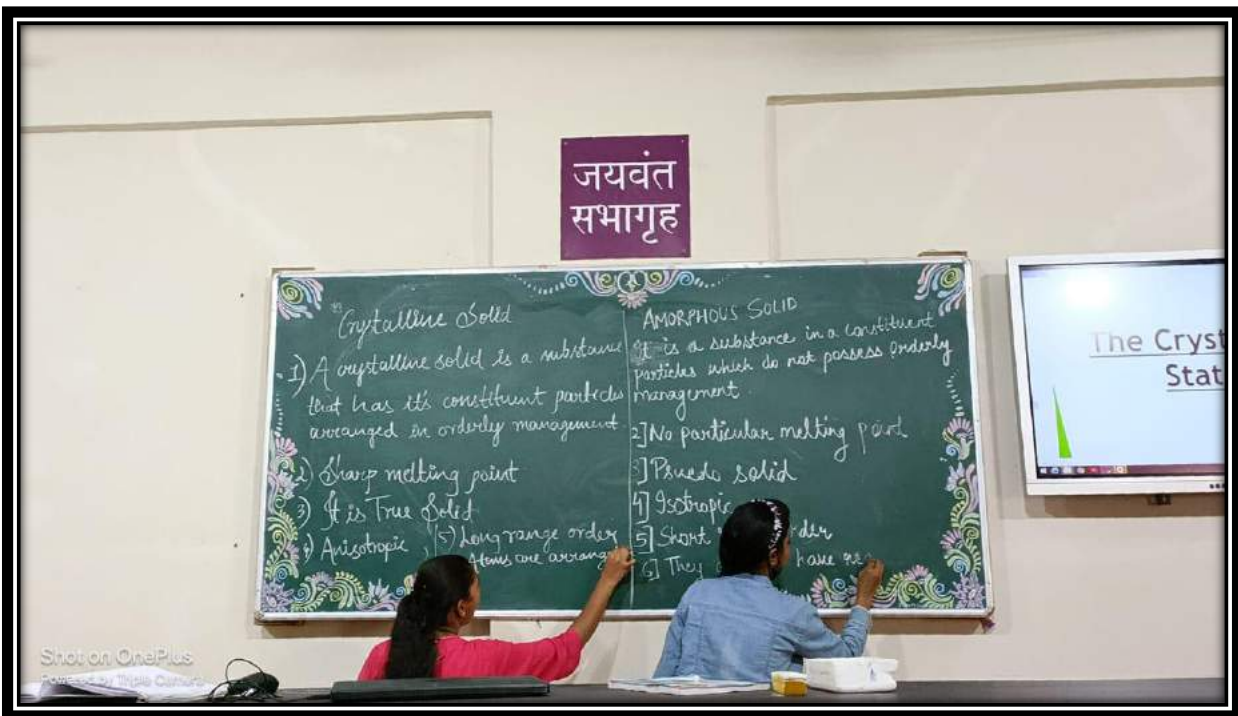 जयवंत
सभागृह
Crystalline Solid
1) A crystalline solid is a substance
that has it's constituent particles
arranged in orderly management.
2) Sharp melting point
3) It is True Solid
4) Anisotropic
5) Long range order
are arrang
AMORPHOUS SOLID
It is a substance in a constituent
particles which do not possess Orderly
management.
2] No particular melting point
3] Psuedo solid
4] Isotropic
5] Short order
6] They have
The Cryst
Stat
Shot on OnePlus
Powered by Triple Camera